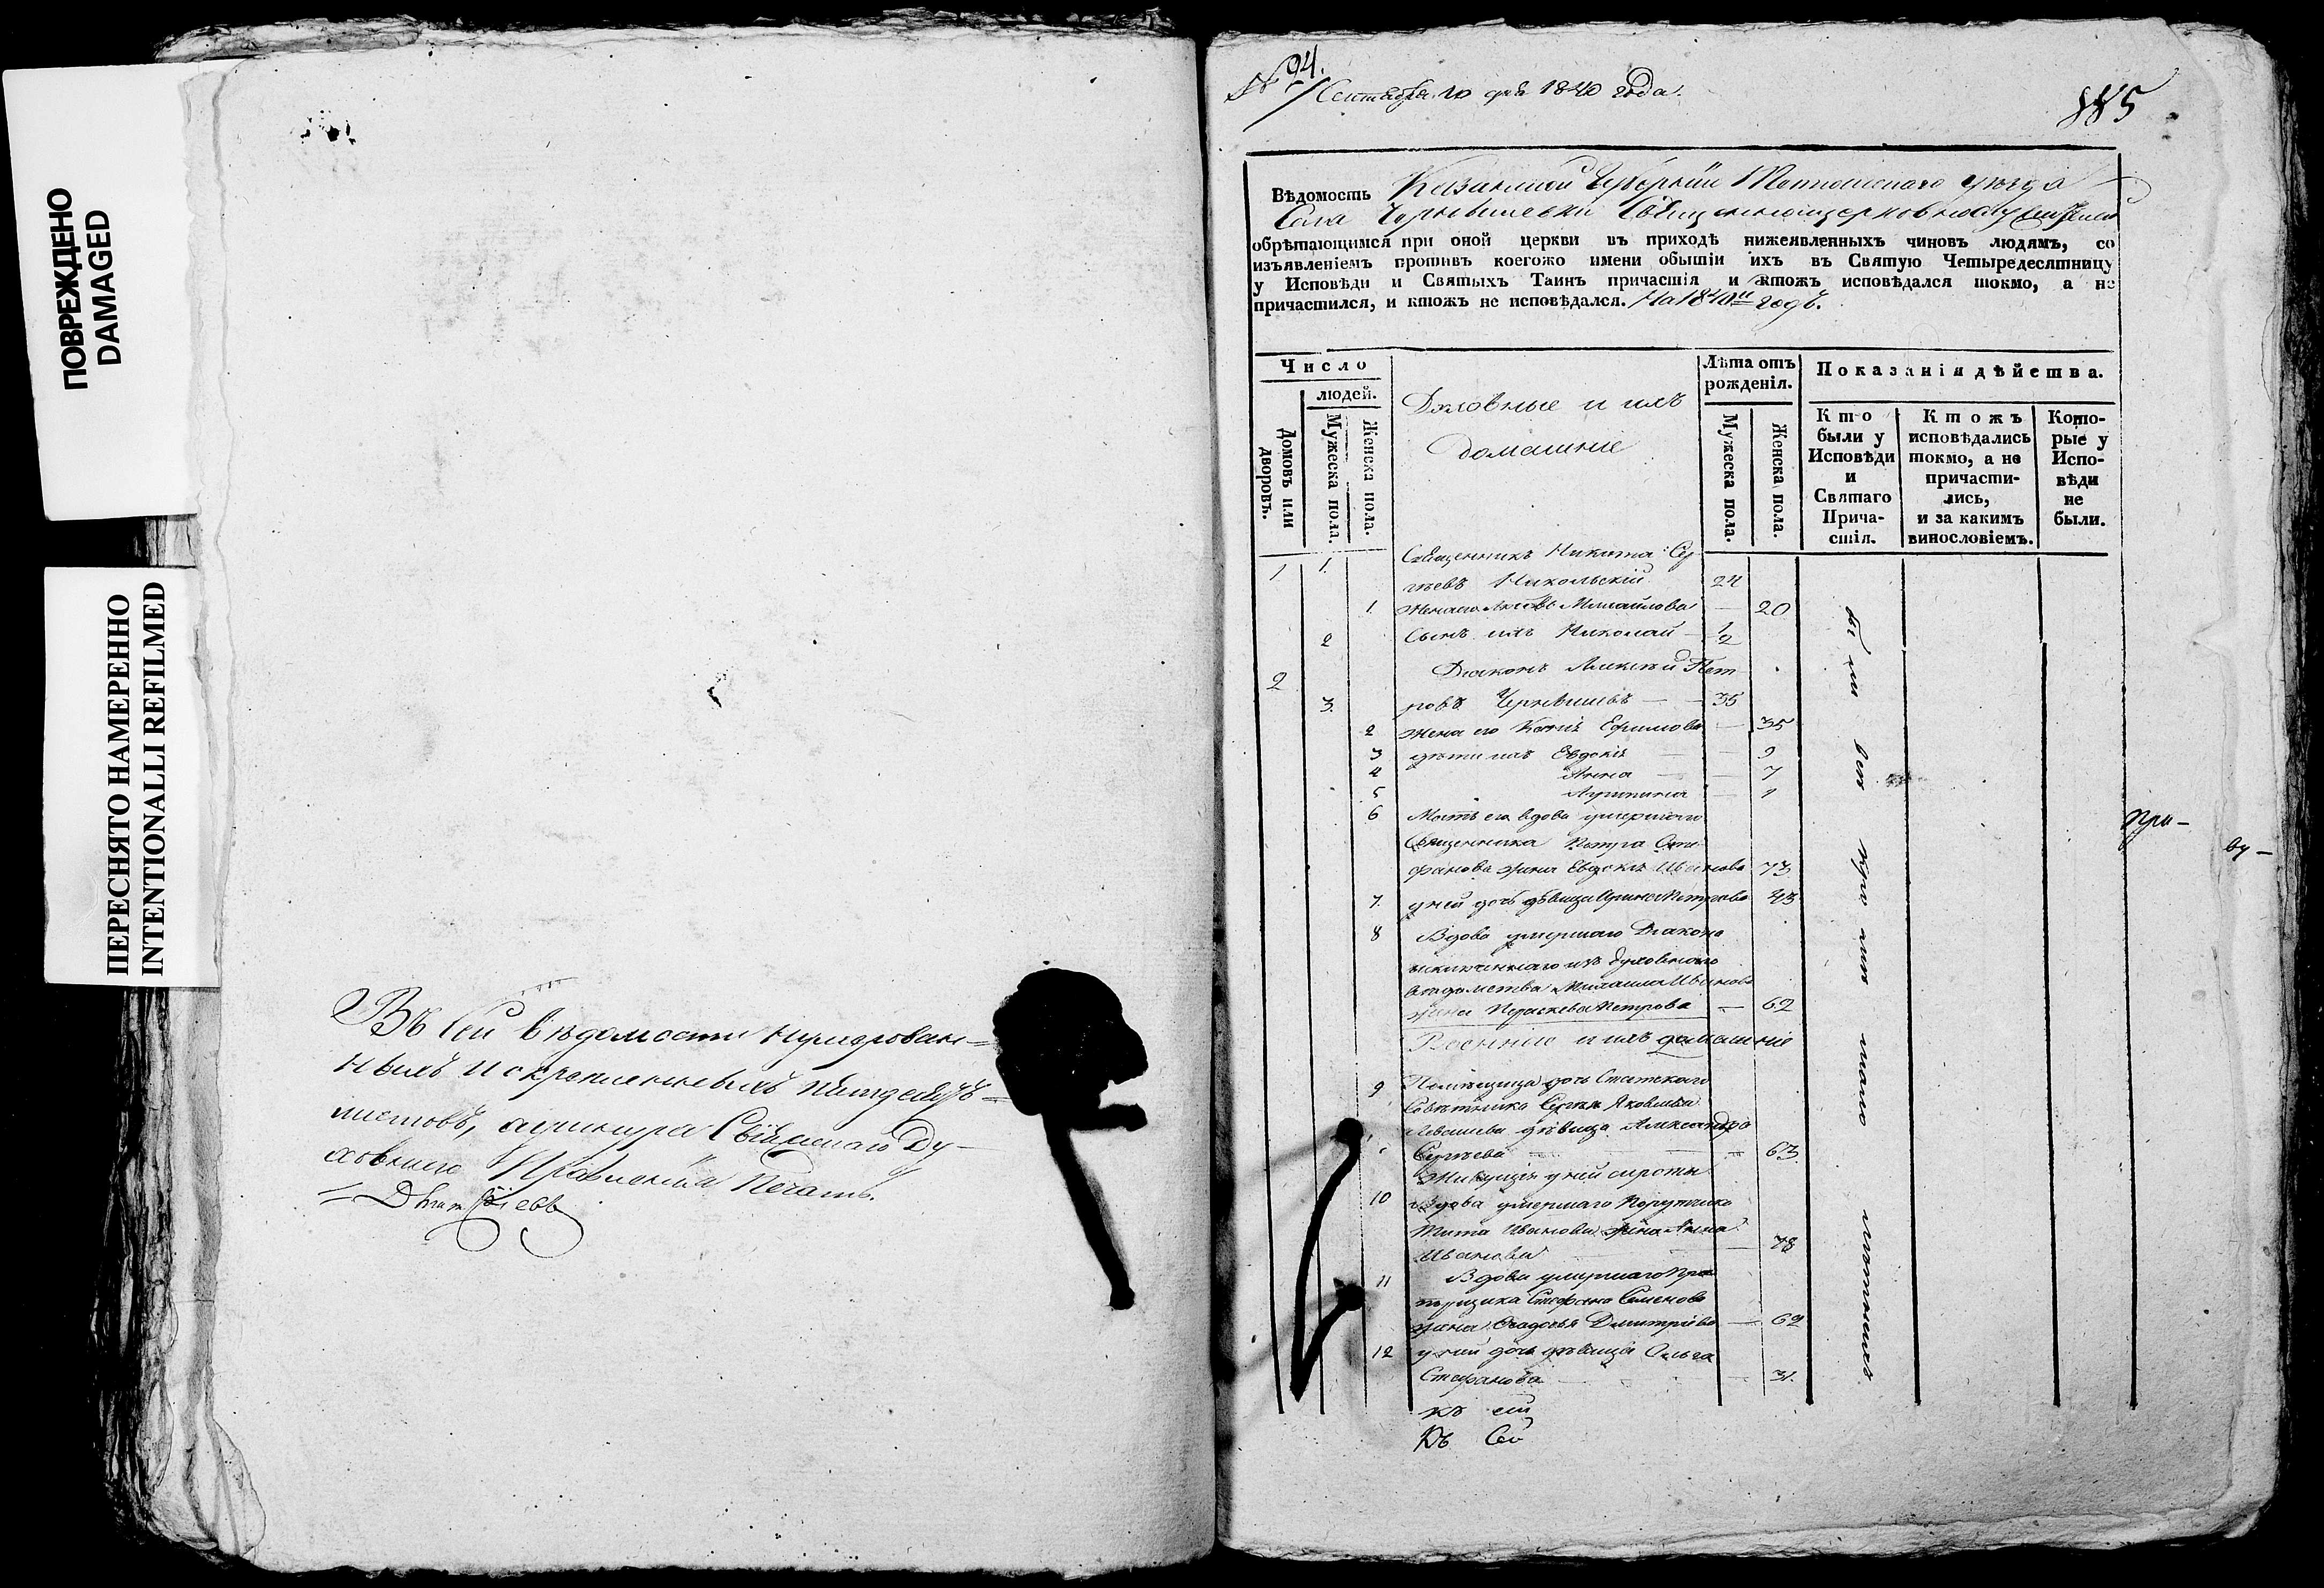 ПОВРЕЖДЕНО
DAMAGED
ПЕРЕСНЯТО НАМЕРЕННО
INTENTIONALLI REFILMED
Въ сей вѣдомости нумерован=
ныхъ и скрепленныхъ
листовъ, Свіяжскаго Ду-
ховнаго Правленія Печать.
№ 94.
Сентября 10 дня 1840 года.
885
Вѣдомость Казанской Губерніи уѣзда
Села Чернышевки
обрѣтающимся при оной церкви въ приходѣ нижеявленныхъ чиновъ людямъ, со
изъявленіемъ противъ коегожо имени обытіи ихъ въ Святую Четыредесятницу
у Исповѣди и Святыхъ Таинъ причастія и ктожъ исповѣдался токмо, а не
причастился, и ктожъ не исповѣдался. На 1840й годъ.
Число
людей.
Домовъ или дворовъ.
Мужеска пола.
Женска пола.
Духовные и ихъ
домашніе
Лѣта отъ рожденія.
Мужеска пола.
Женска пола.
Показанія дѣйства.
Кто были у Исповѣди и Святаго Причастія.
Ктожъ исповѣдались токмо, а не причастились, и за какимъ винословіемъ.
Которые у Исповѣди не были.
1 1. Священникъ Никита Сер-
гѣевъ Никольскій 24
1. Жена его Михайлова — 20
2 Сынъ ихъ Николай — 1/2
2 Діаконъ Алексѣй Пет
3. ровъ Чернышевъ — 35
2 Жена его Ефимова — 35
3 дѣти ихъ Евдокія — 9
4 Анна — 7
5 Агрипина — 1
6 Мать его вдова умершаго
Священника Петра Сте-
фанова жена Евдокія Иванова 73
7. у ней дочь дѣвица Ирина Петрова 43
8 Вдова умершаго Діакона
исключеннаго изъ духовнаго
вѣдомства Михаила Иванова
жена Параскева Петрова — 62
Военніе и ихъ домашніе
9 Помѣщица дочь Статскаго
Совѣтника Сергѣя Яковлева
Левашева дѣвица Александра
Сергѣева — 63
Живущія у ней сироты
10 Вдова умершаго Порутчика
Тита Иванова жена Анна
Иванова — 78
11 Вдова умершаго Пра
порщика Стефана Семенова
жена Дмитріева — 62
12 у ней дочь дѣвица Ольга
Стефанова — 31.
къ сей
Къ Сей
При-
ву-